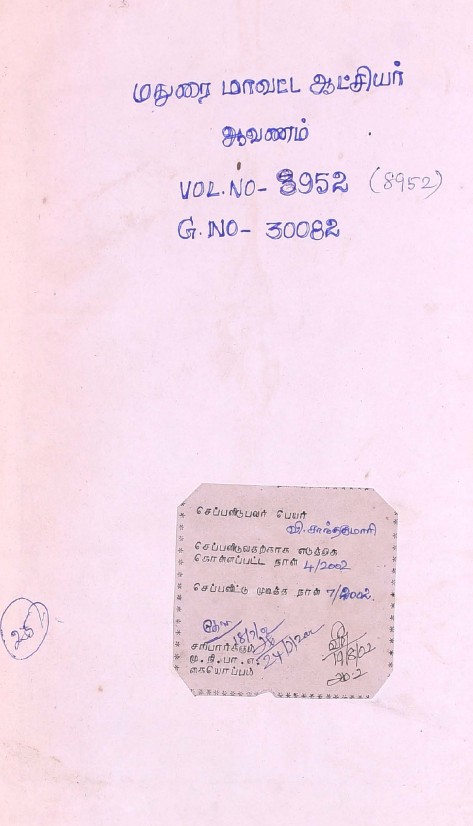 மதுரை மாவட்ட ஆட்சியர்
ஆவணம்
VOL.NO- 8952 (8952)
G.NO- 30082
செப்பனிடுபவர் பெயர்
வி.சாந்தகுமாரி
செப்பனிடுவதற்காக எடுத்துக்
கொள்ளப்பட்ட நாள் 4/2002
செப்பனிட்டு முடித்த நாள் 7/2002
சரிபார்க்கும்
மு.நி.பா.எ.
கையொப்பம்
19/8/02